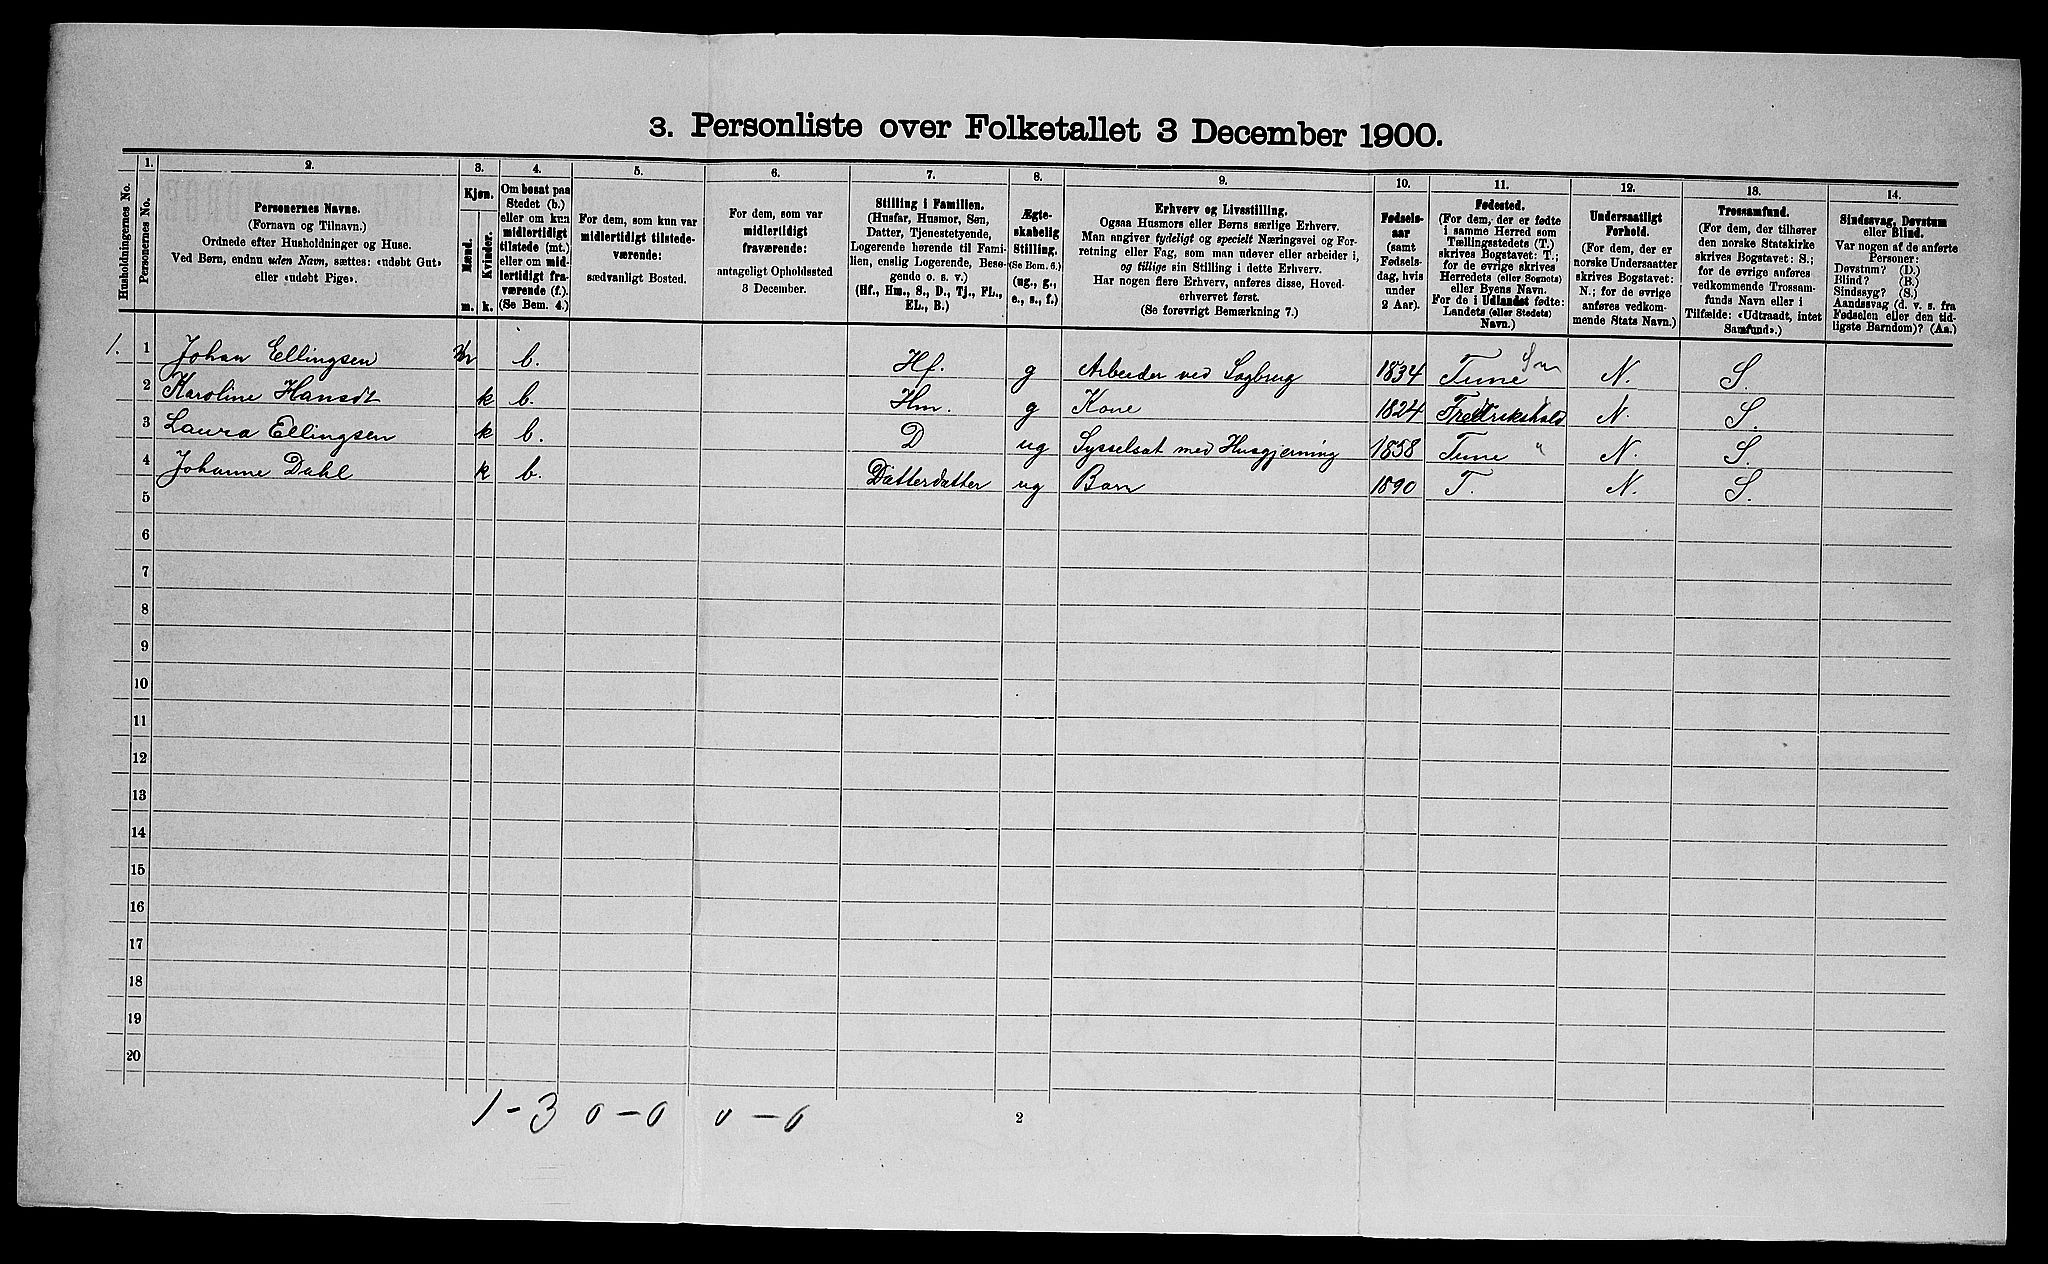 3. Personliste over Folketallet 3 December 1900.
Husholdningernes No.
1.
Personernes No.
2.
Personernes Navne.
(Fornavn og Tilnavn.)
Ordnede efter Husholdninger og Huse.
Ved Børn, endnu uden Navn, sættes: «udøbt Gut»
eller «udøbt Pige».
3.
Kjøn.
Mænd.
Kvinder.
m. k.
4.
Om bosat paa
Stedet (b.)
eller om kun
midlertidigt
tilstede (mt.)
eller om mid-
lertidigt fra-
værende (f.).
(Se Bem. 4.)
5.
For dem, som kun var
midlertidigt tilstede-
værende:
sædvanligt Bosted.
6.
For dem, som var
midlertidigt
fraværende:
antageligt Opholdssted
3 December.
7.
Stilling i Familien.
(Husfar, Husmor, Søn,
Datter, Tjenestetyende,
Logerende hørende til Fami-
lien, enslig Logerende, Besø-
gende o. s. v.)
(Hf., Hm., S., D., Tj., FL.,
EL., B.)
8.
Ægte-
skabelig
Stilling.
(Se Bem. 6.)
(ug., g.,
e., s., f.)
9.
Erhverv og Livsstilling.
Ogsaa Husmors eller Børns særlige Erhverv.
Man angiver tydeligt og specielt Næringsvei og For-
retning eller Fag, som man udøver eller arbeider i,
og tillige sin Stilling i dette Erhverv.
Har nogen flere Erhverv, anføres disse, Hoved-
erhvervet først.
(Se forøvrigt Bemærkning 7.)
10.
Fødsels-
aar
(samt
Fødsels-
dag, hvis
under
2 Aar).
11.
Fødested.
(For dem, der er fødte
i samme Herred som
Tællingsstedets (T.)
skrives Bogstavet: T.;
for de øvrige skrives
Herredets (eller Sognets)
eller Byens Navn.
For de i Udlandet fødte:
Landets (eller Stedets)
Navn.)
12.
Undersaatligt
Forhold.
(For dem, der er
norske Undersaatter
skrives Bogstavet:
N.; for de øvrige
anføres vedkom-
mende Stats Navn.)
13.
Trossamfund.
(For dem, der tilhører
den norske Statskirke
skrives Bogstavet: S.;
for de øvrige anføres
vedkommende Trossam-
funds Navn eller i
Tilfælde: «Udtraadt, intet
Samfund».)
14.
Sindssvag, Døvstum
eller Blind.
Var nogen af de anførte
Personer:
Døvstum? (D.)
Blind? (B.)
Sindssyg? (S.)
Aandssvag (d. v. s. fra
Fødselen eller den tid-
ligste Barndom)? (Aa.)
1. 1 Johan Ellingsen m b. Hf. g Arbeider ved Sagbrug 1834 Tune N. S.
2 Karoline Hansdt k b. Hm. g Kone 1824 Fredrikshald N. S.
3 Laura Ellingsen k b. D ug Sysselsat med Husgjerning 1858 Tune " N. S.
4 Johanne Dahl k b. Datterdatter ug Barn 1890 T. N. S.
5
6
7
8
9
10
11
12
13
14
15
16
17
18
19
20
1-3 0-0 0-0
2